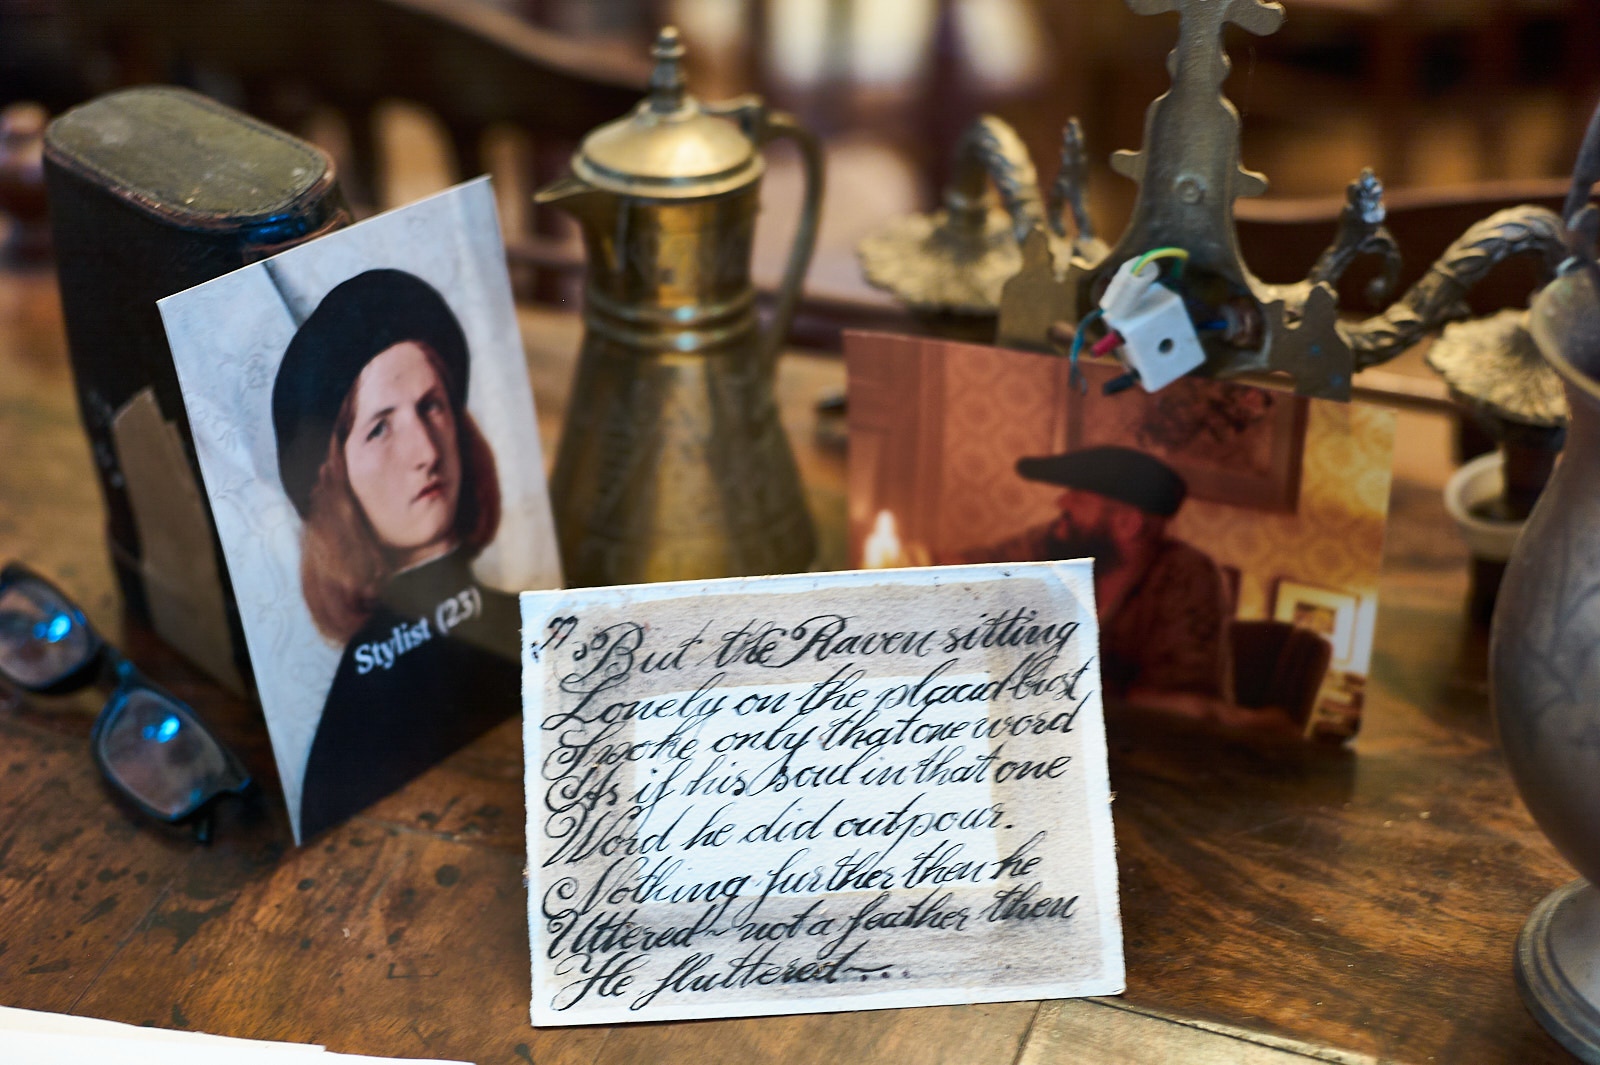 Stylist (23)
" But the Raven sitting
Lonely on the placid bust,
Spoke only that one word
As if his soul in that one
Word he did outpour.
Nothing further then he
Uttered~ not a feather then
He fluttered~...